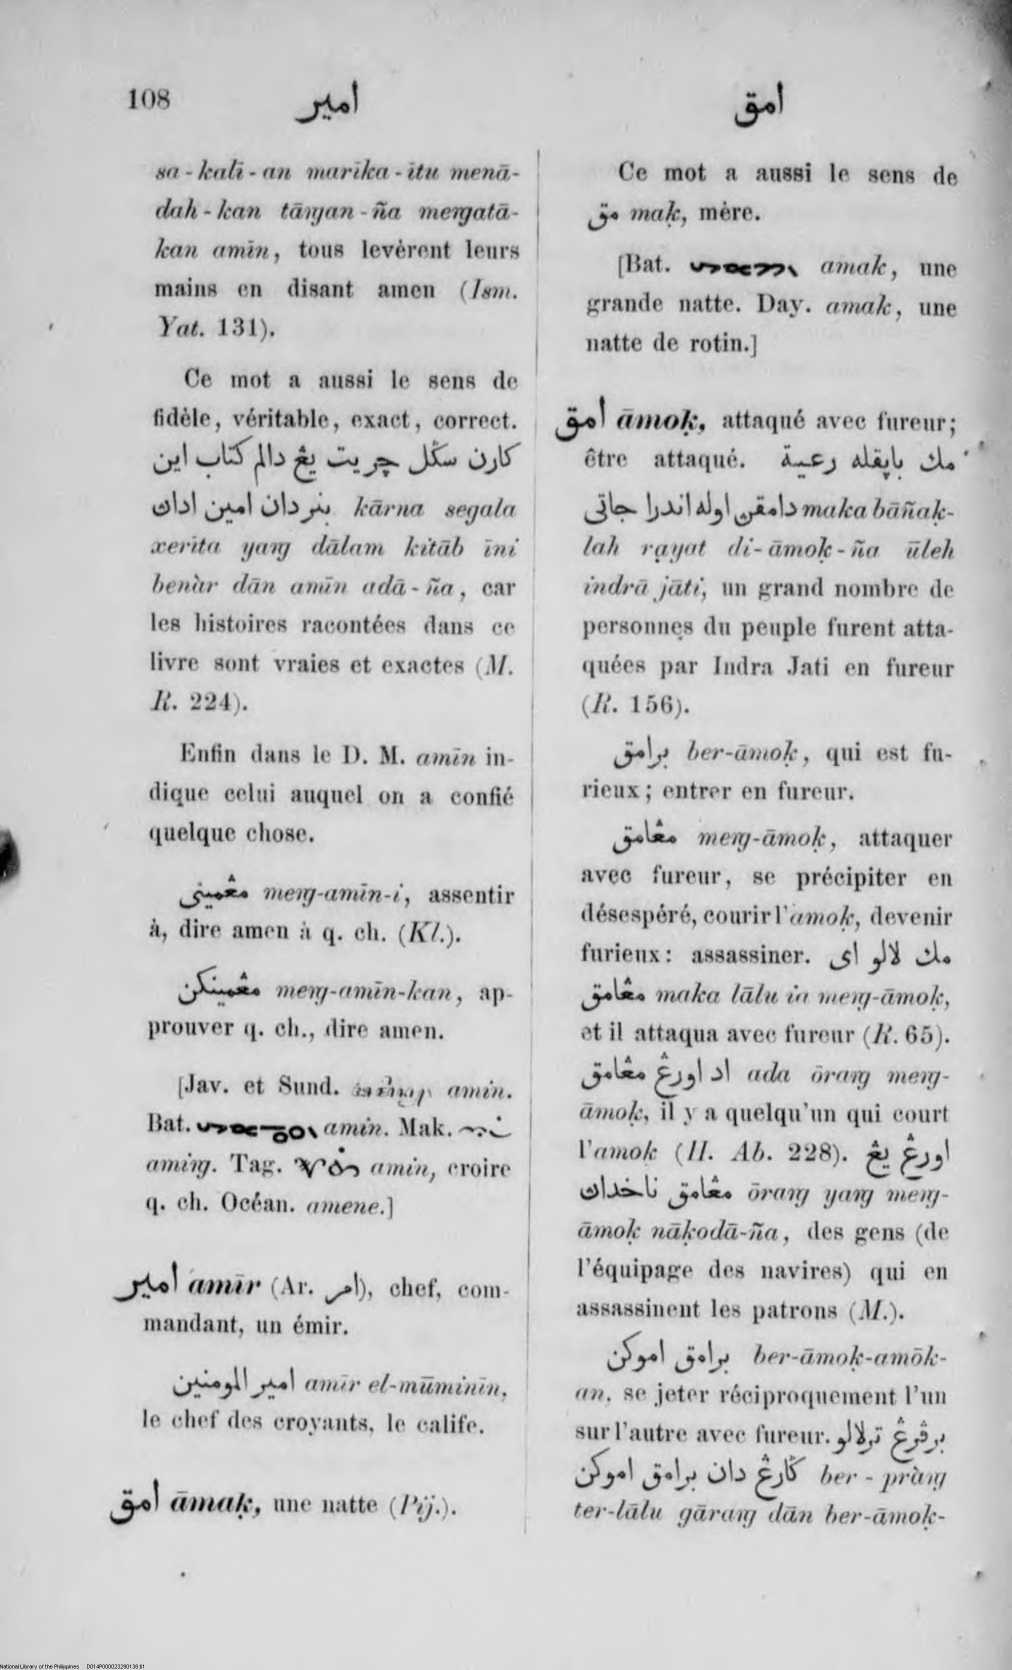 108
امير
امق
sa-kalī-an marīka-ītu menā-
dah-kan tāṅgan-ña meṅgatā-
kan amīn, tous levèrent leurs
mains en disant amen (Ism.
Yat. 131).
Ce mot a aussi le sens de
fidèle, véritable, exact, correct.
كارن سݢل چريت يڠ دالم كتاب اين
بنر دان امين اداڽ kārna segala
xerīta yaṅg dālam kitāb īni
benàr dān amīn adā-ña, car
les histoires racontées dans ce
livre sont vraies et exactes (M.
R. 224).
Enfin dans le D. M. amīn in-
dique celui auquel on a confié
quelque chose.
مڠميني meṅg-amīn-i, assentir
à, dire amen à q. ch. (Kl.).
مڠمينكن meṅg-amīn-kan, ap-
prouver q. ch., dire amen.
[Jav. et Sund. amin.
Bat. amin. Mak.
amiṅg. Tag. amin, croire
q. ch. Océan. amene.]
امير amīr (Ar. امر), chef, com-
mandant, un émir.
امير المومنين amīr el-mūminīn,
le chef des croyants, le calife.
امق āmaḳ, une natte (Pij.).
Ce mot a aussi le sens de
مق maḳ, mère.
[Bat. amak, une
grande natte. Day. amak, une
natte de rotin.]
امق āmoḳ, attaqué avec fureur;
être attaqué. مك باڽقله رعية
دامقڽ اوله اندرا جاتي maka bāñaḳ-
lah rạyat di-āmoḳ-ña ūleh
indrā jāti, un grand nombre de
personnes du peuple furent atta-
quées par Indra Jati en fureur
(R. 156).
برامق ber-āmoḳ, qui est fu-
rieux; entrer en fureur.
مڠامق meṅg-āmoḳ, attaquer
avec fureur, se précipiter en
désespéré, courir l'amoḳ, devenir
furieux: assassiner. مك لالو اي
مڠامق maka lālu ia meṅg-āmoḳ,
et il attaqua avec fureur (R. 65).
اد اورڠ مڠامق ada ōraṅg meṅg-
āmoḳ, il y a quelqu'un qui court
l'amok (H. Ab. 228). اورڠ يڠ
مڠامق ناخداڽ ōraṅg yaṅg meṅg-
āmoḳ nāḳodā-ña, des gens (de
l'équipage des navires) qui en
assassinent les patrons (M.).
برامق اموكن ber-āmoḳ-amōk-
an, se jeter réciproquement l'un
sur l'autre avec fureur. برڤرڠ ترلالو
ݢارڠ دان برامق اموكن ber-pràṅg
ter-lālu gāraṅg dān ber-āmoḳ-
National Library of the Philippines